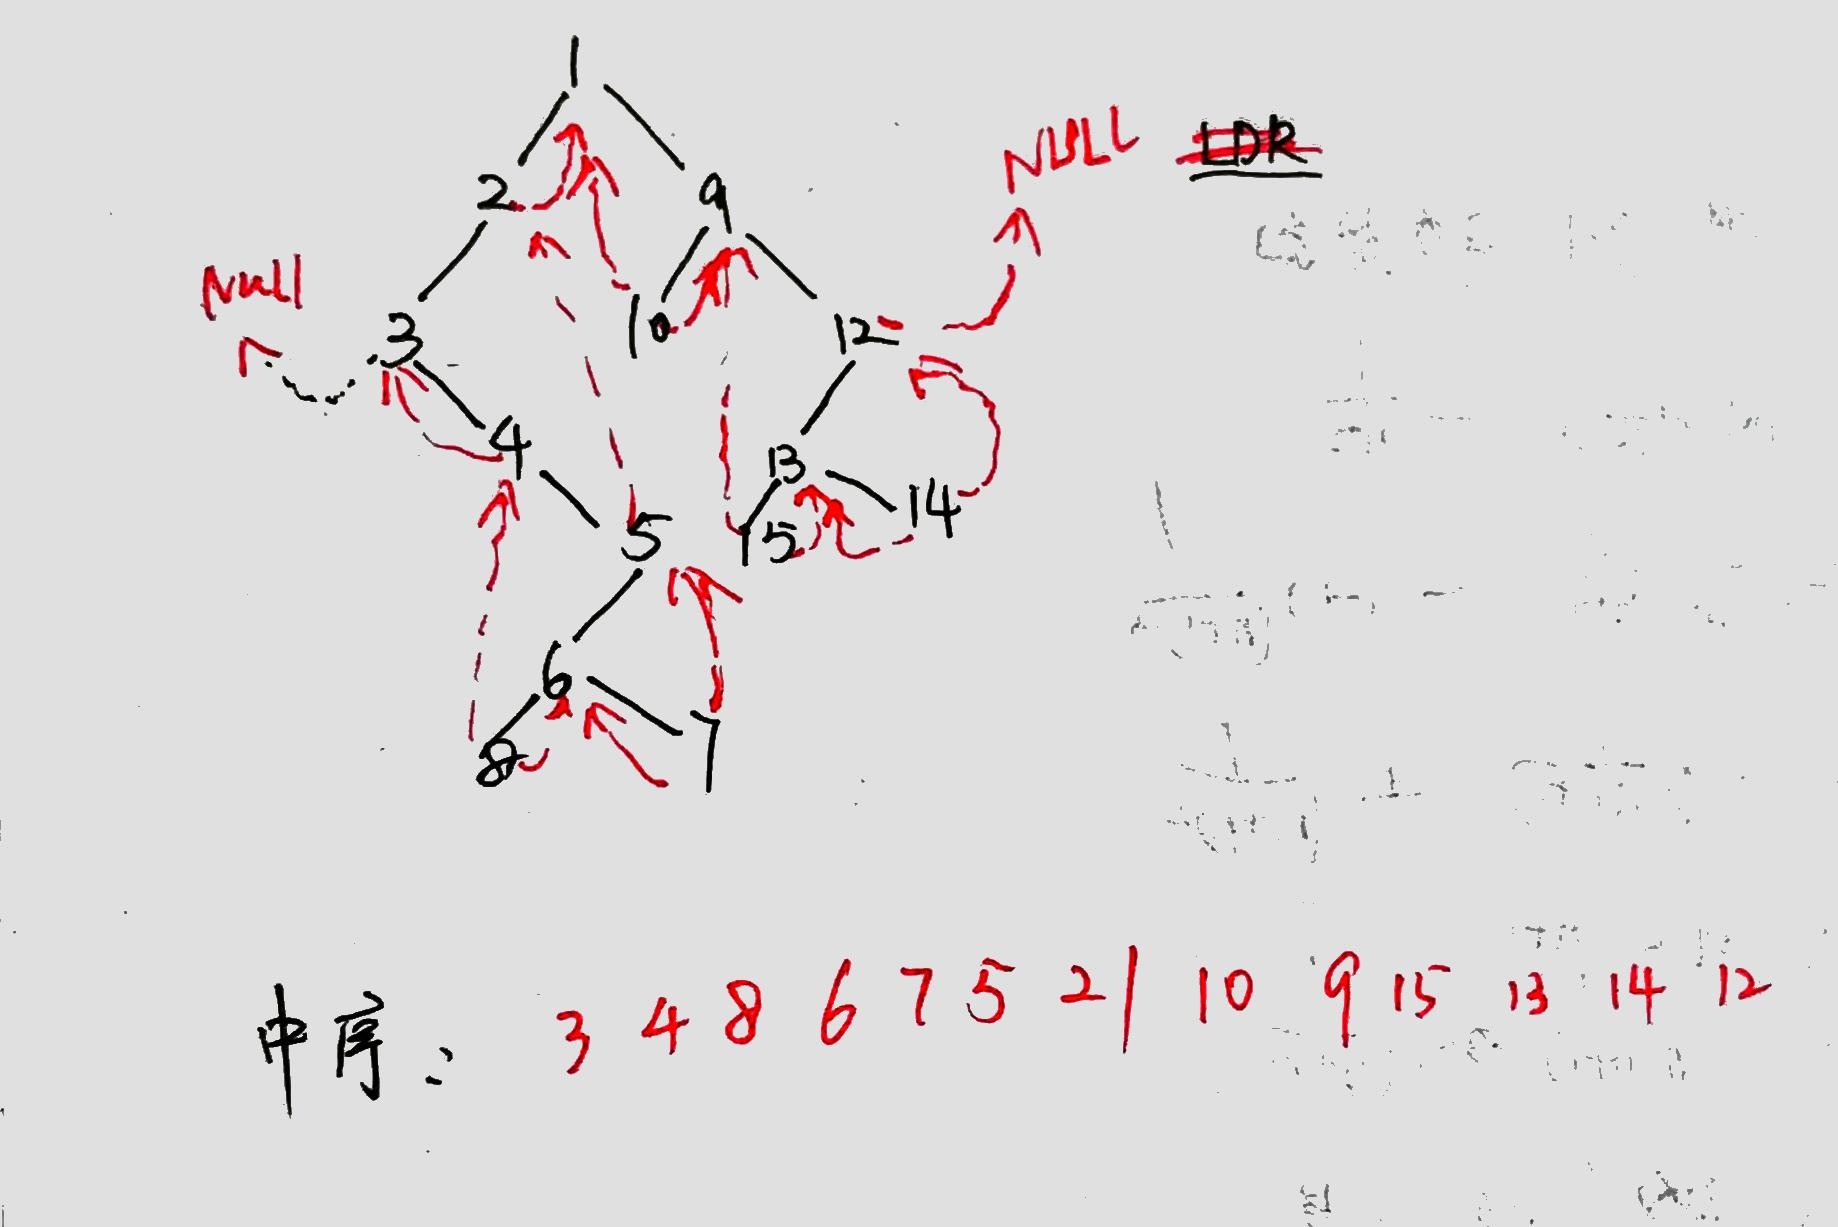 1
2 9
NULL LDR
Null
3 10 12
4 13
5 15 14
6
8 7
中序: 3 4 8 6 7 5 2 1 10 9 15 13 14 12